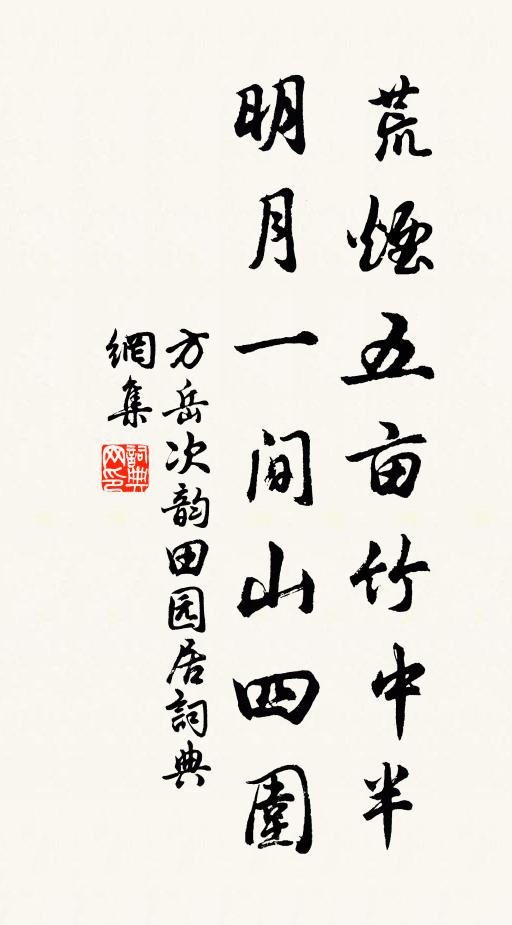 荒煙五亩竹中半
明月一间山四圍
方岳次韵田园居詞典
網集
詞典网印